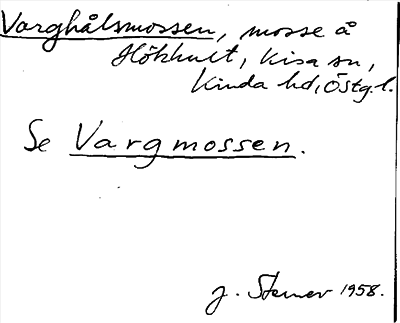 Varghålsmossen, mosse å
Hökhult, Kisa sn,
Kinda hd, Östg.l.
Se Vargmossen.
J. Stener 1958.